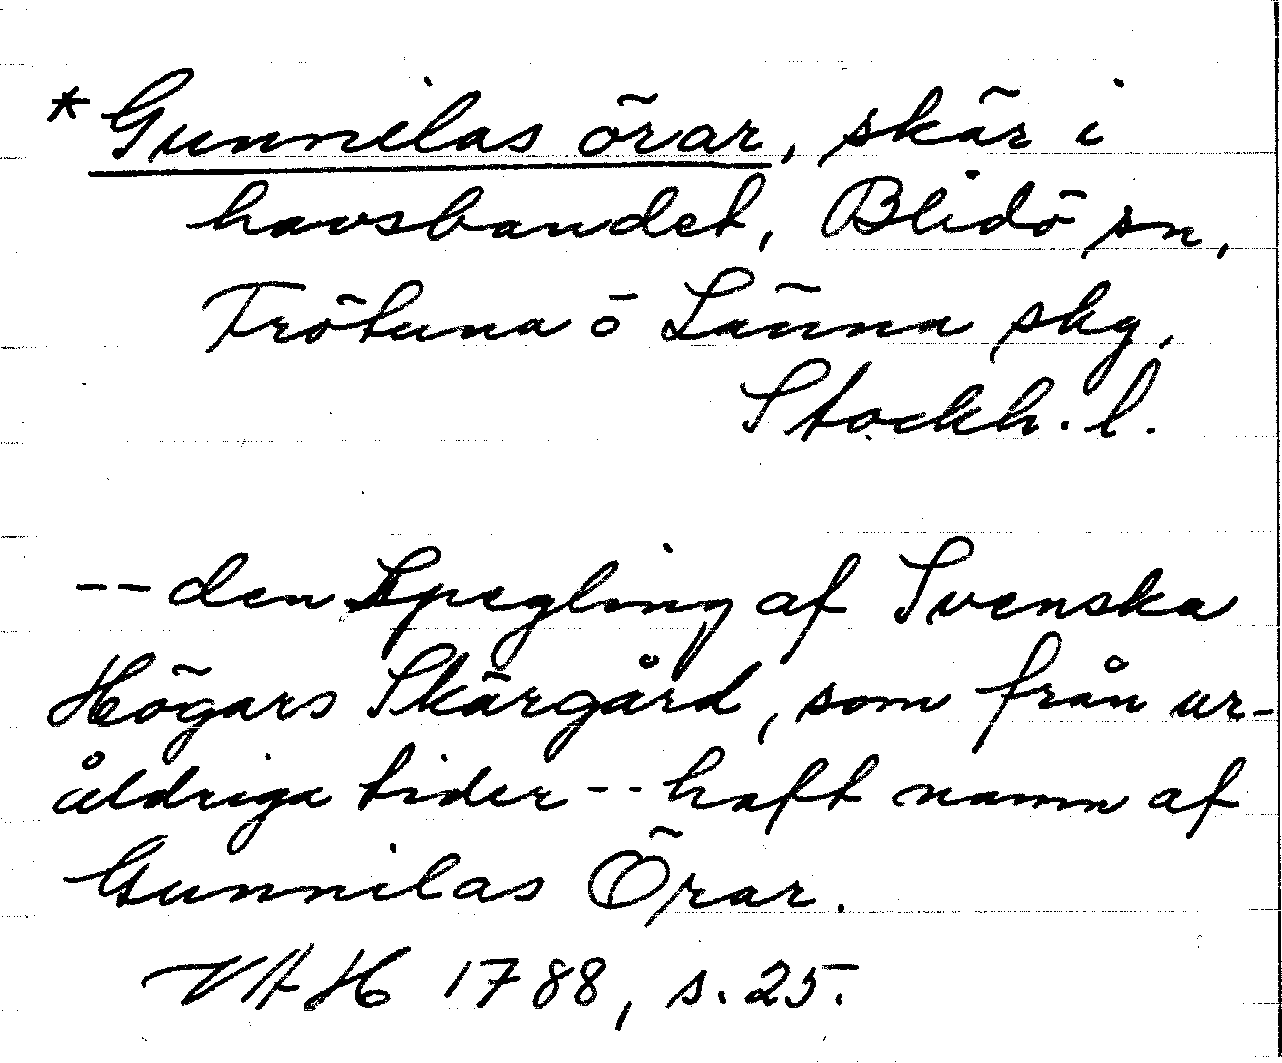 * Gunnilas örar, skär i
havsbandet, Blidö sn,
Frötuna o Länna skg,
Stockh. l.
-- den Spegling af Svenska
Högars Skärgård, som från ur-
åldriga tider -- haft namn af
Gunnilas Örar.
VAH 1788, s. 25.